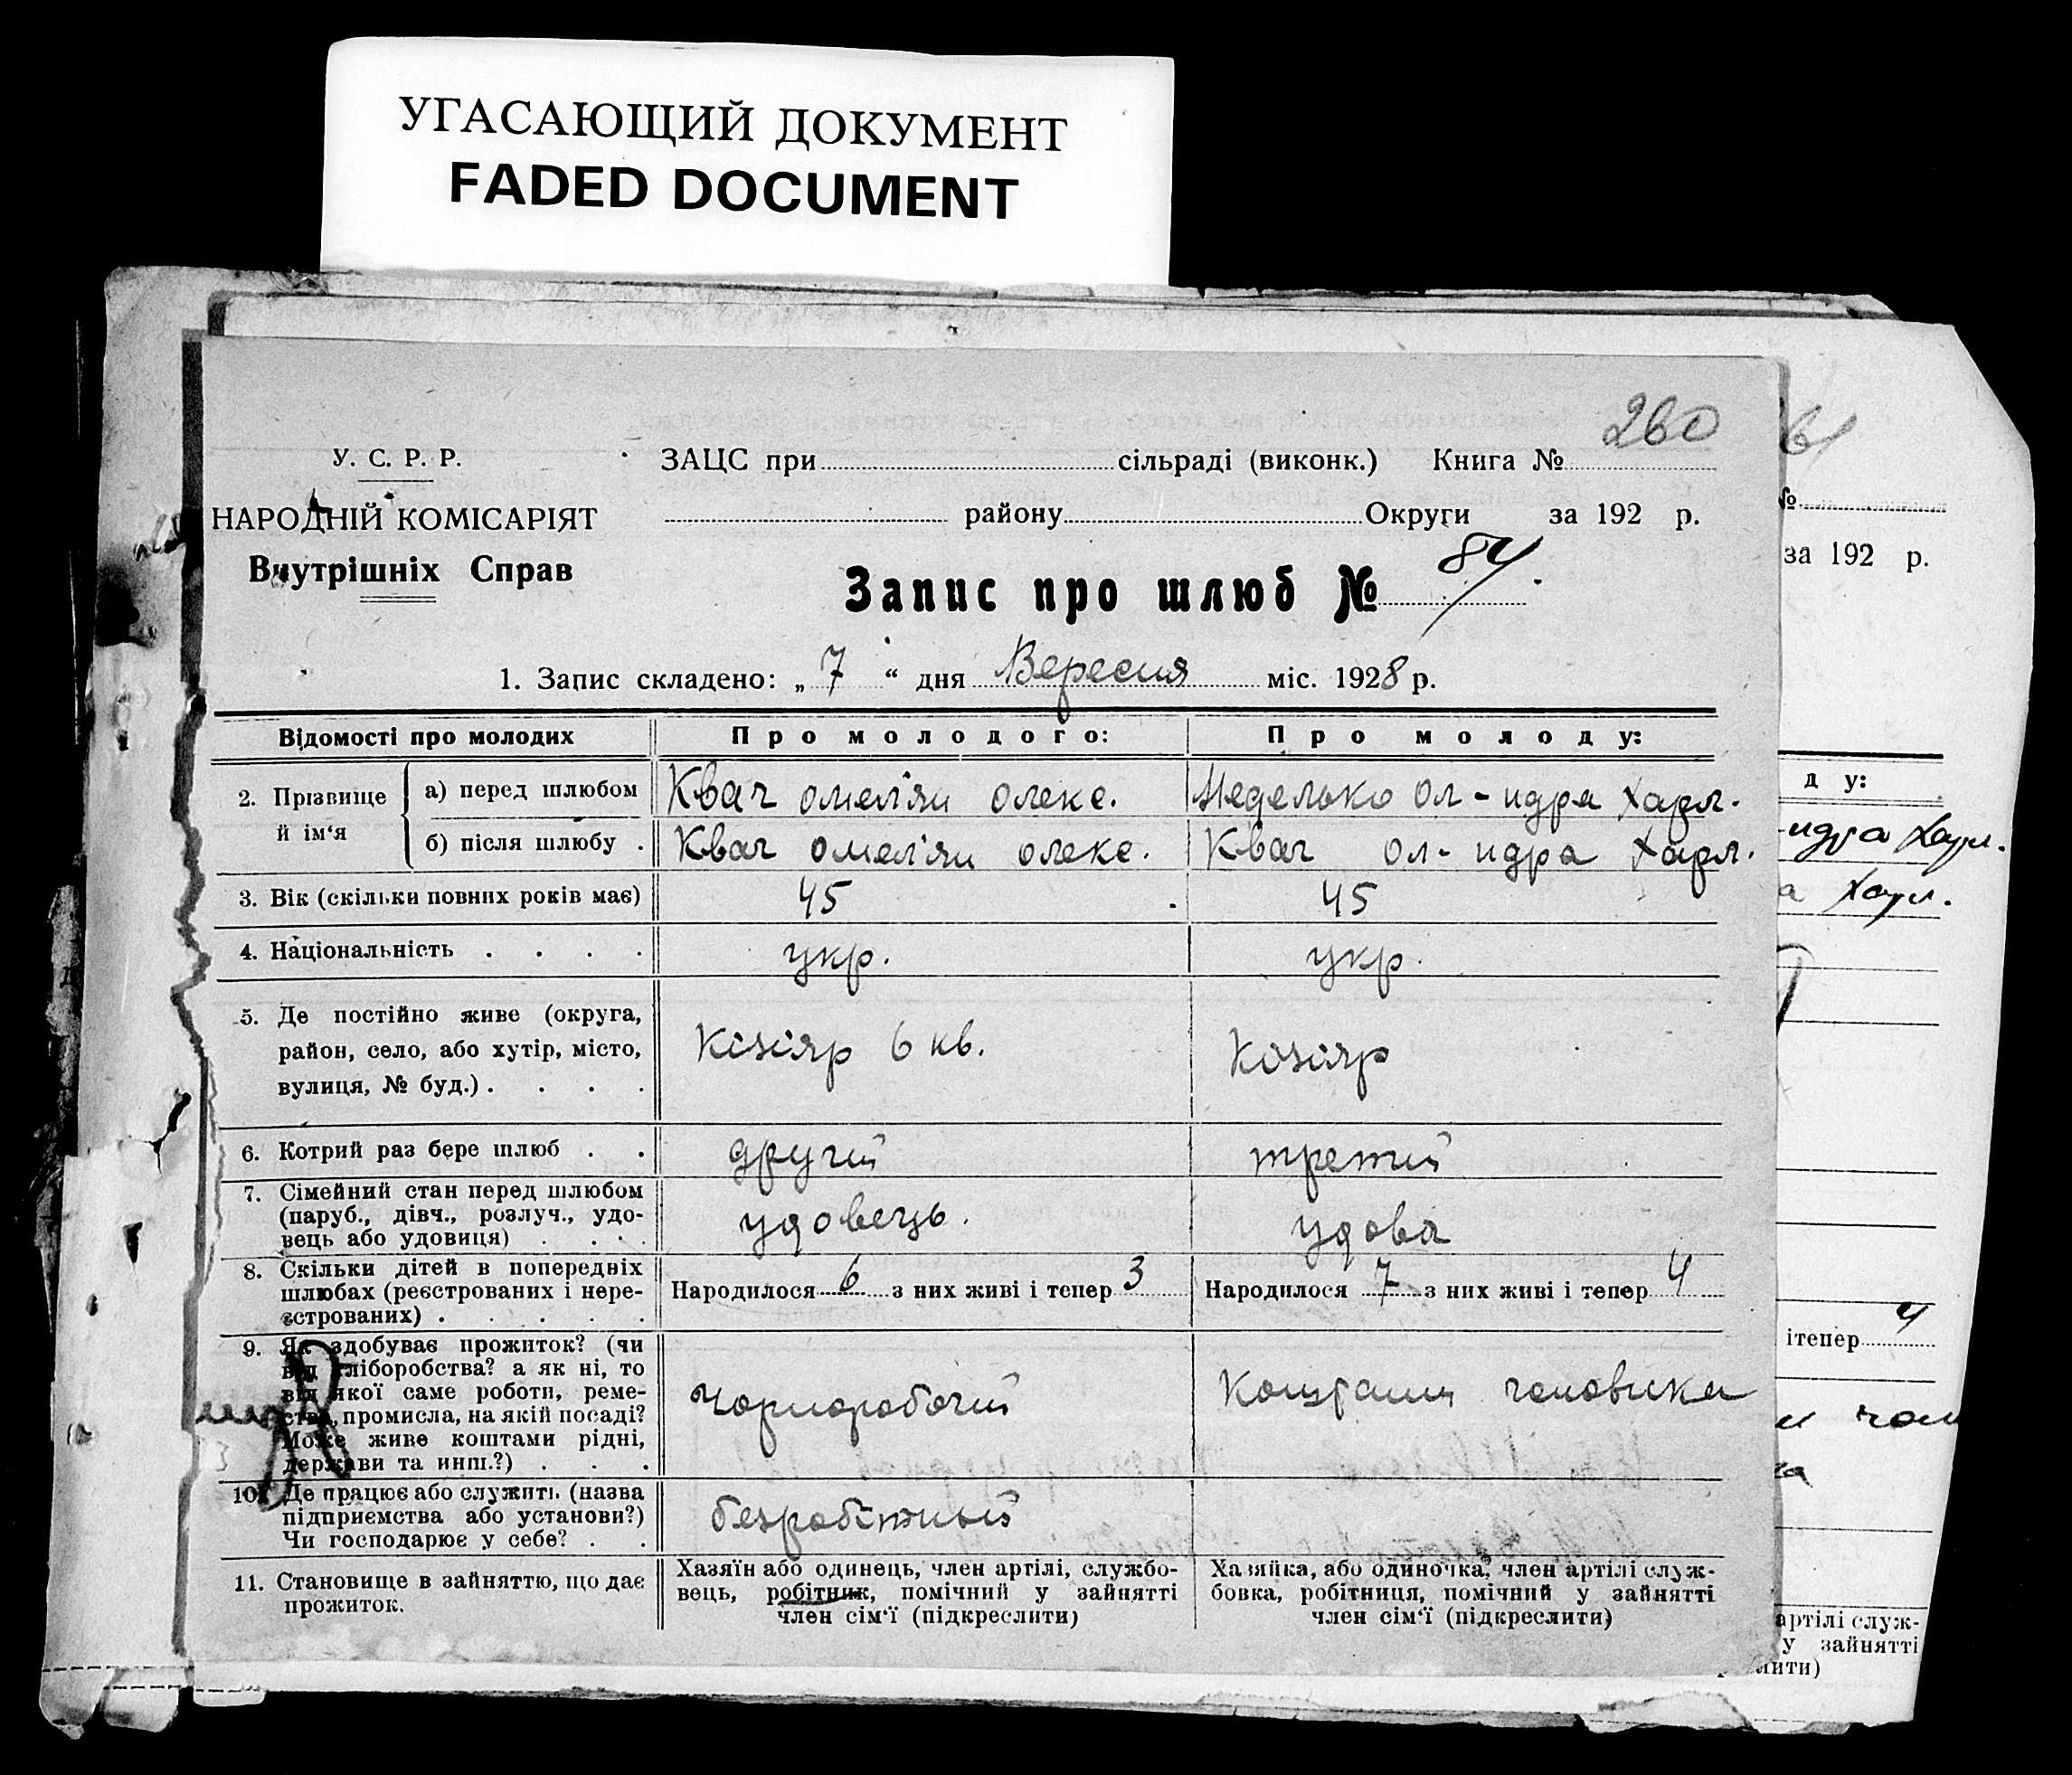 УГАСАЮЩИЙ ДОКУМЕНТ
FADED DOCUMENT
260
У. С. Р. Р.
НАРОДНІЙ КОМІСАРІЯТ
Внутрішніх Справ
ЗАЦС при сільраді (виконк.) Книга №
району Округи за 192 р.
Запис про шлюб № 84
1. Запис складено: „ 7 “ дня Вересня міс. 1928 р.
Відомості про молодих
Про молодого:
Про молоду:
2. Прізвище й ім‘я
а) перед шлюбом
Квач омел'ян олекс.
Неделько Ол-ндра Харл.
б) після шлюбу .
Квач омел'ян олекс.
Квач ол-ндра Харл.
3. Вік (скільки повних років має)
45
45
4. Національність . . . .
укр.
укр.
5. Де постійно живе (округа,
район, село, або хутір, місто,
вулиця, № буд.) . . . .
Кізіяр 6 кв.
Кізіяр
6. Котрий раз бере шлюб . .
другий
третий
7. Сімейний стан перед шлюбом
(паруб., дівч., розлуч., удо-
вець або удовиця) . . . .
удовець.
удова
8. Скільки дітей в попередніх
шлюбах (реєстрованих і нере-
єстрованих) . . . . .
Народилося 6 з них живі і тепер 3
Народилося 7 з них живі і тепер 4
9. Як здобуває прожиток? (чи
від хліборобства? а як ні, то
від якої саме роботи, реме-
ства, промисла, на якій посаді?
Може живе коштами рідні,
держави та инш.?) . . .
Чорноробочий
Коштами чоловика
10. Де працює або служить (назва
підприємства або установи?)
Чи господарює у себе? . .
безработный
11. Становище в зайняттю, що дає
прожиток.
Хазяїн або одинець, член артілі, службо-
вець, робітник, помічний у зайнятті
член сім‘ї (підкреслити)
Хазяйка, або одиночка, член артілі служ-
бовка, робітниця, помічний у зайнятті
член сім‘ї (підкреслити)
№
за 192 р.
д у:
-ндра Харл.
а Харл.
ітепер 4
и чол
артілі служ-
у зайнятті
лити)